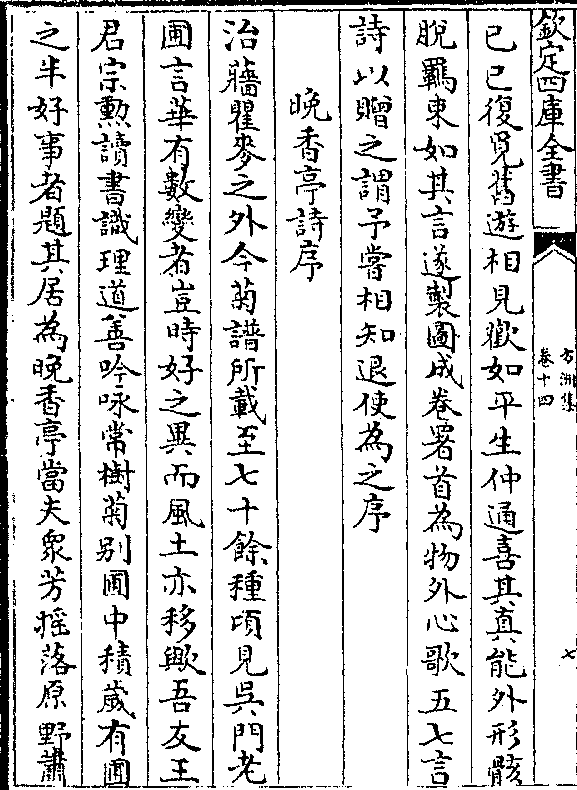 欽定四庫全書
方洲集
卷十四
七
已已復覓舊遊相見歡如平生仲通喜其真能外形骸
脫羈束如其言遂製圖成卷署首為物外心歌五七言
詩以贈之謂予嘗相知退使為之序
晩香亭詩序
治蘠瞿麥之外今菊譜所載至七十餘種頃見吳門老
圃言華有數變者豈時好之異而風土亦移歟吾友王
君宗勲讀書識理道善吟咏常樹菊别圃中積歲有圃
之半好事者題其居為晚香亭當夫衆芳揺落原野蕭